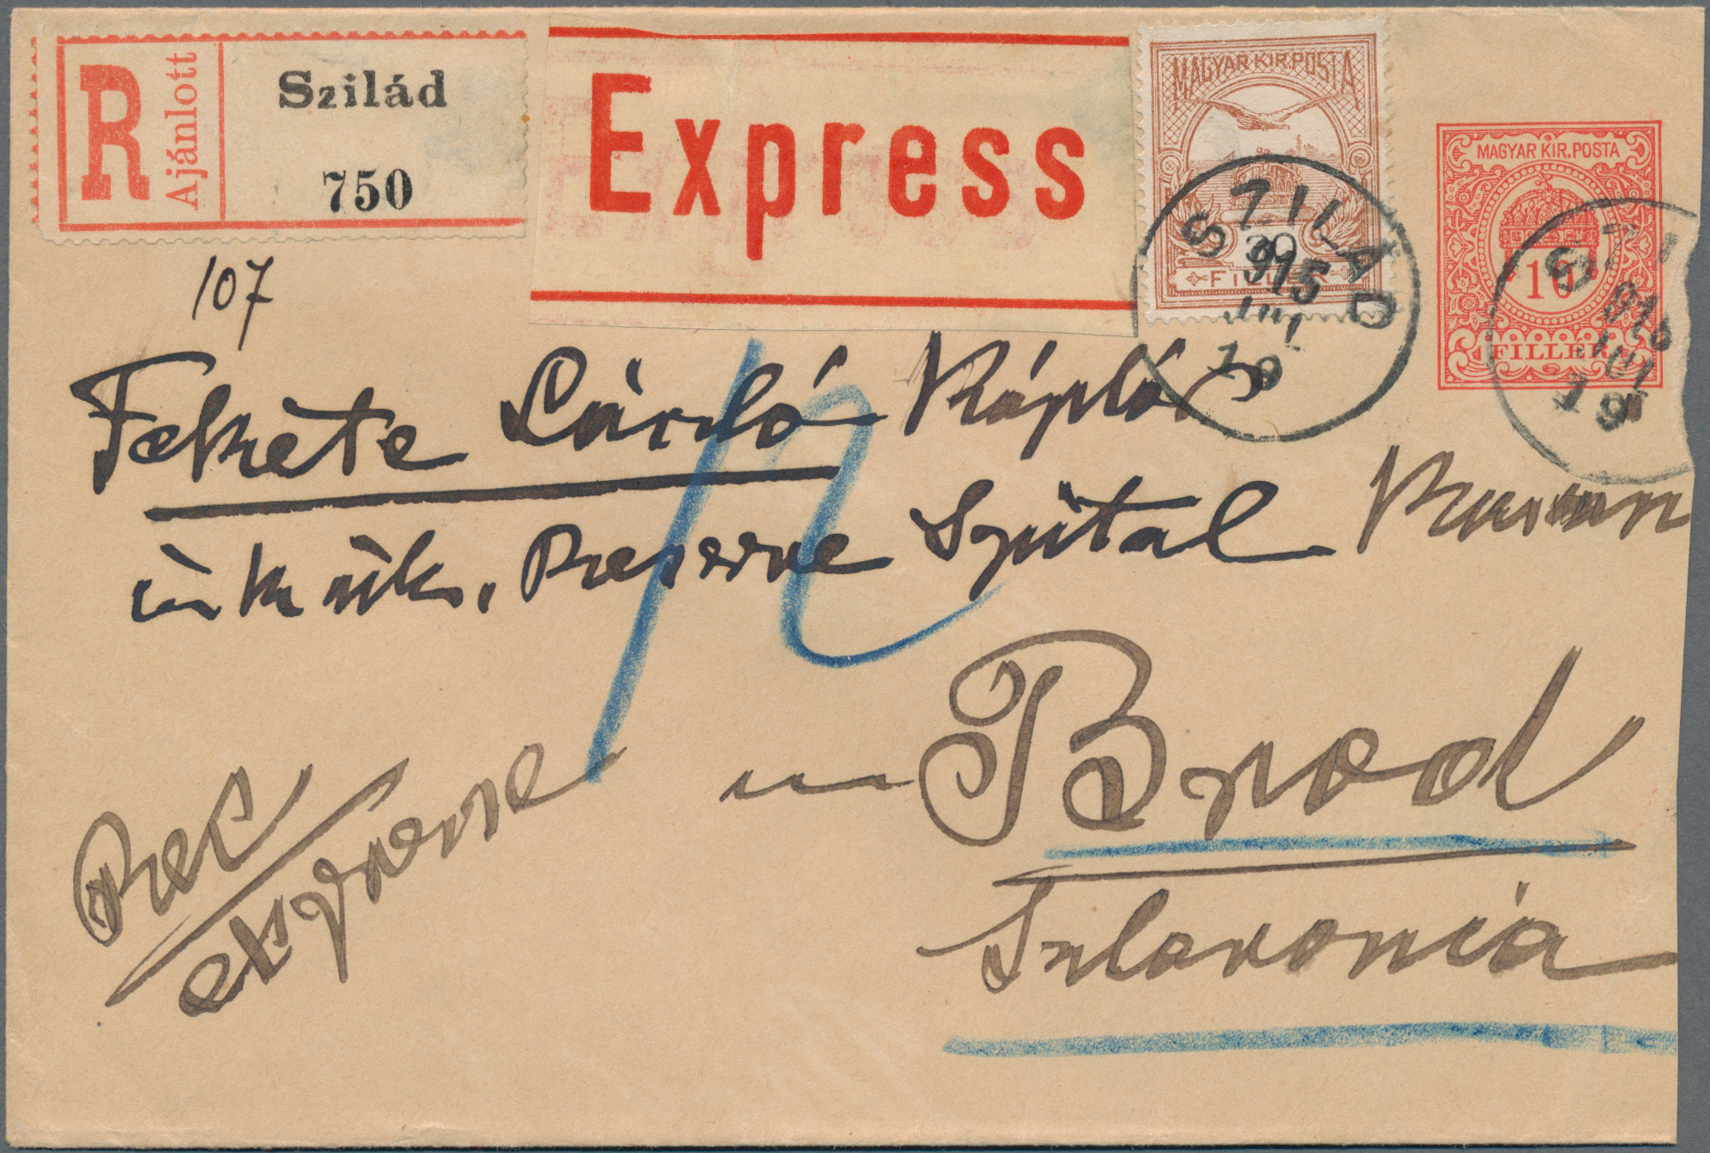 R Ajánlott
Szilád
750
Express
MAGYAR KIR. POSTA
30
SZILÁD
915
JUL
19
MAGYAR KIR. POSTA
10
FILLÉR
915
JUL
19
107
Fekete László Káplár
Reserve Spital
in Brod
Szlavonia
Rec
expresse
12